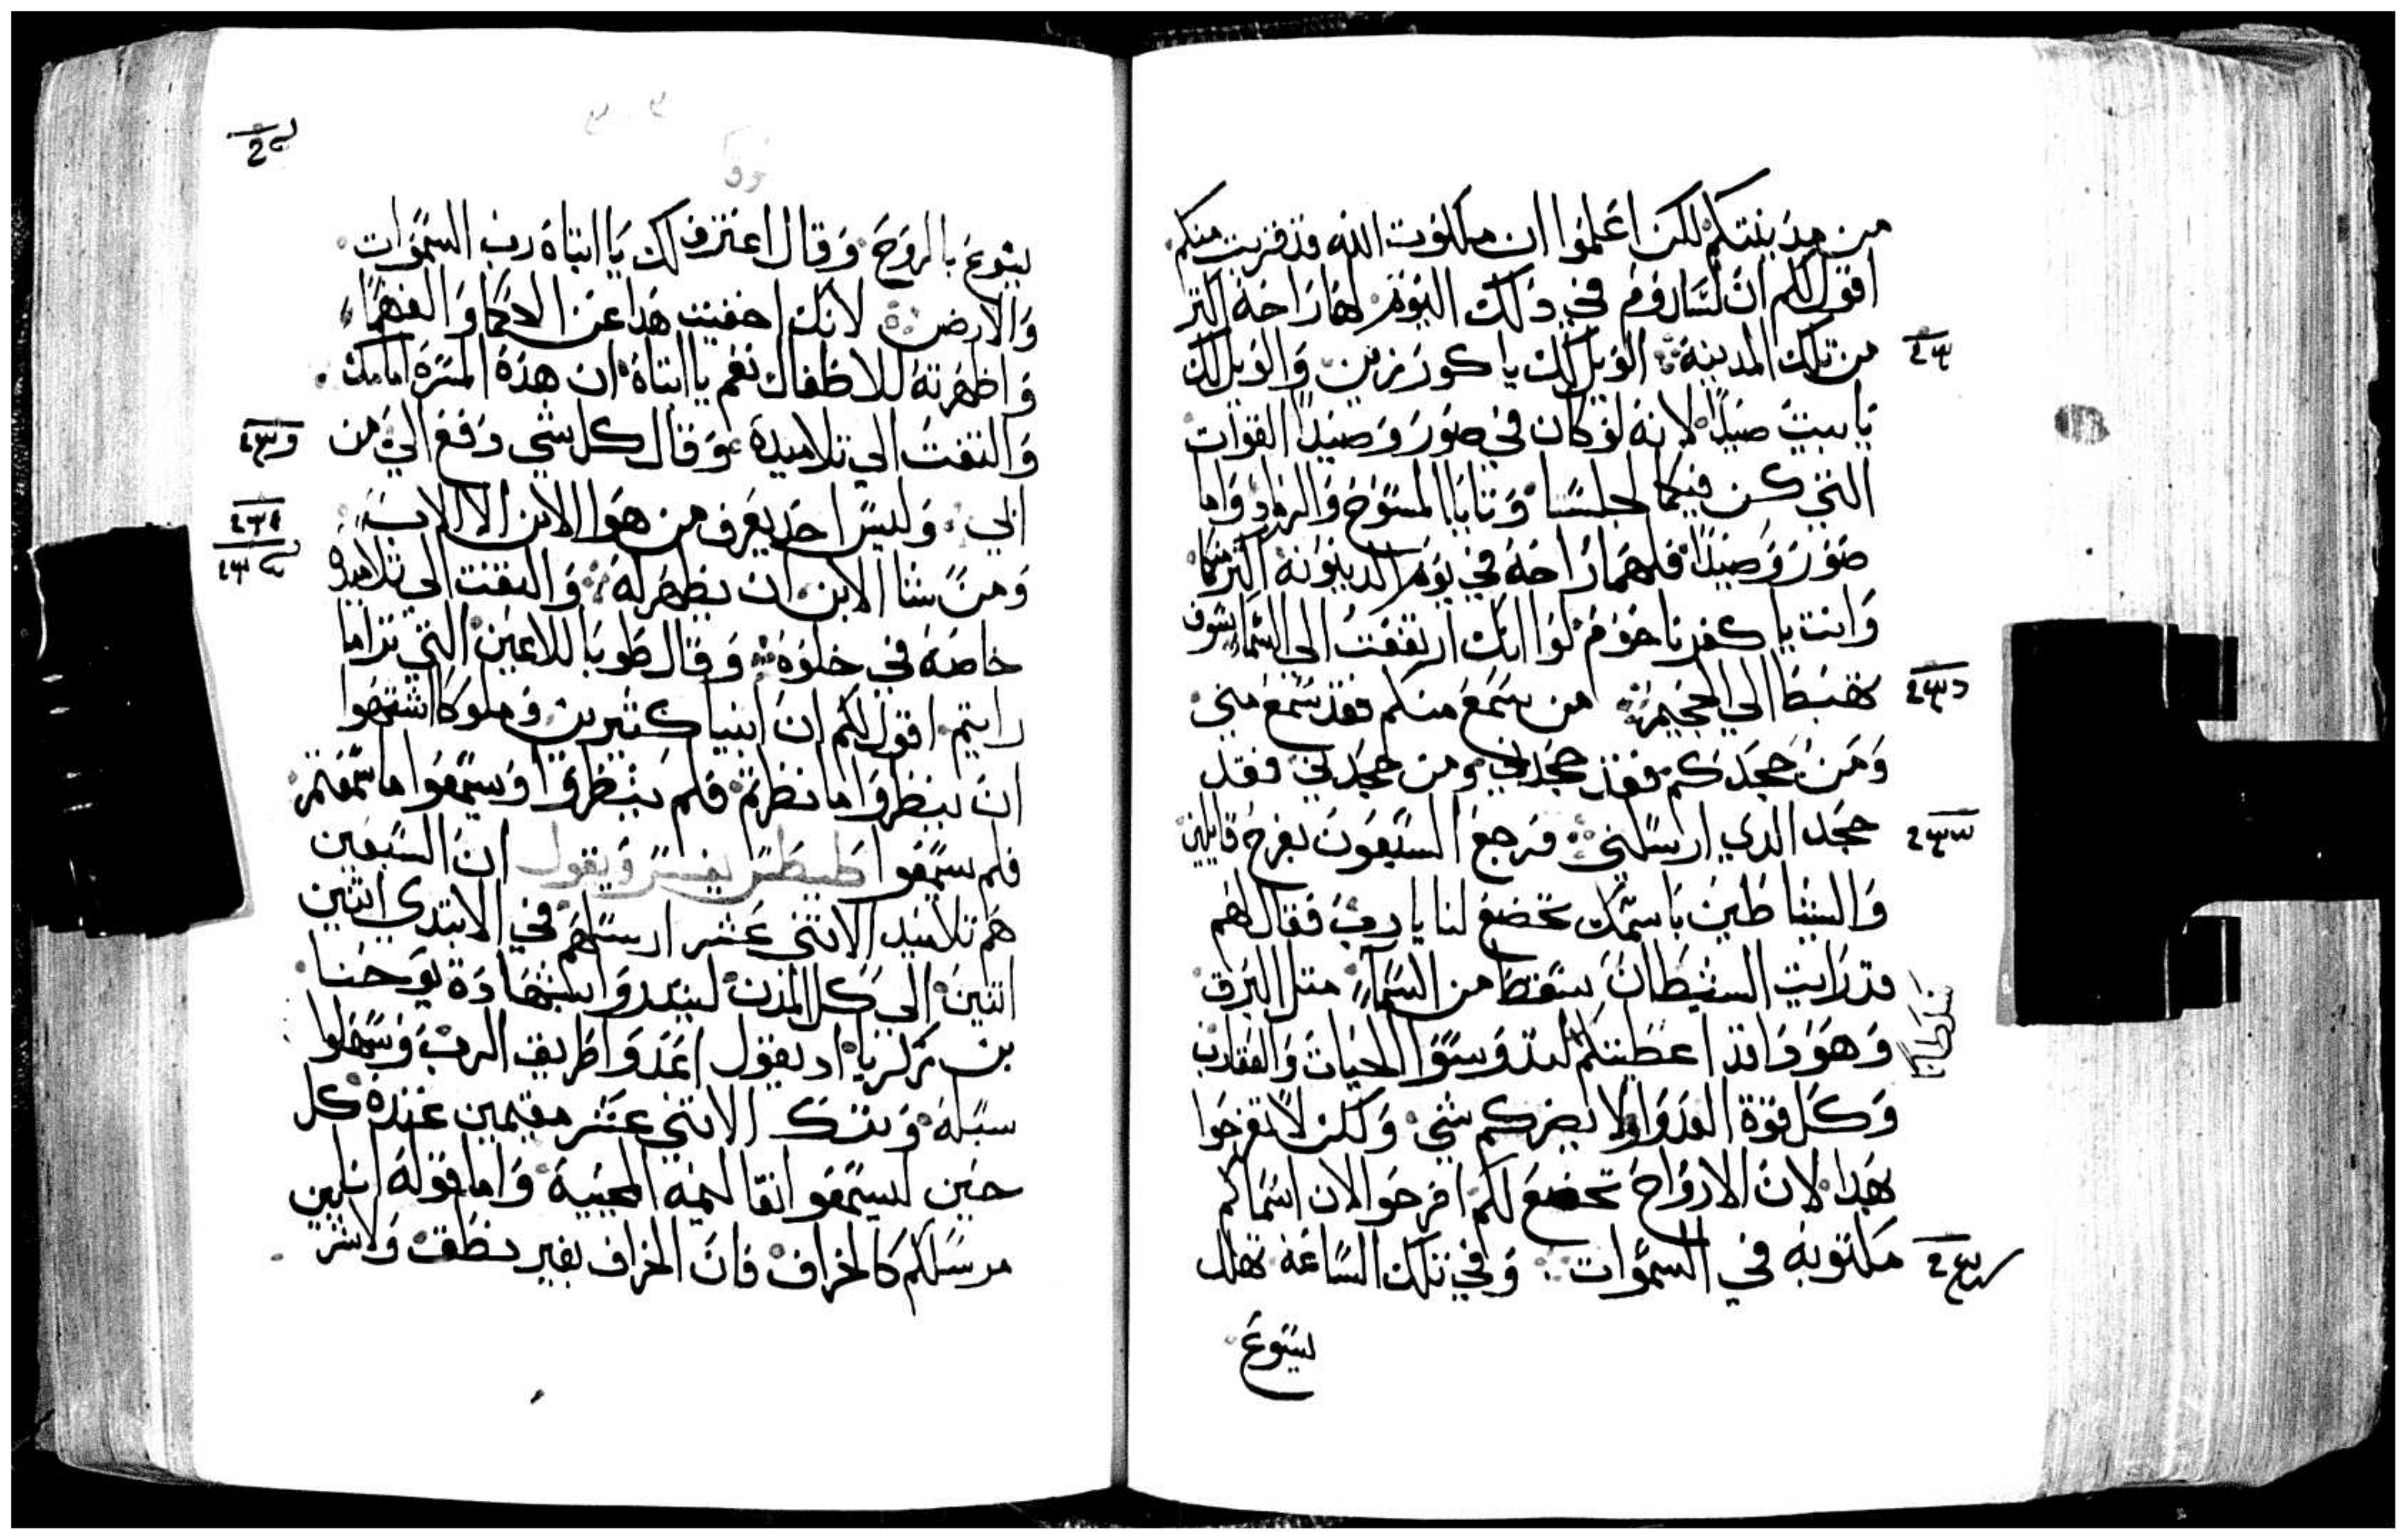 من مدينتكم لكن اعلموا ان ملكوت الله قد قربت منكم
اقول لكم ان لسدوم في ذلك اليوم لها راحة اكتر
من تلك المدينة الويل لك يا كورزين والويل لك
يا بيت صيدا لانه لو كان في صور وصيدا القوات
التي كن فيكما لجلستا وتابا بالمسوح والرماد واما
صور وصيدا فلهما راحة في يوم الدينونة اكتر منكما
وانت يا كفرناحوم لو انك ارتفعت الى السما سوف
تهبط الي الجحيم من سمع منكم فقد سمع مني
ومن جحدكم فقد جحدني ومن جحدني فقد
جحد الدي ارسلني فرجع السبعون بفرح قايلين
والشياطين باسمك تخضع لنا يا رب فقال لهم
قد رايت الشيطان سقط من السما متل البرق
وهودا قد اعطيتكم لتدوسوا الحيات والعقارب
وكل قوة العدوا ولا يضركم شي ولكن لا تفرحوا
بهدا لان الارواح تخضع لكم افرحوا لان اسماكم
مكتوبه في السموات وفي تلك الساعة تهلل
يسوع
يسوع بالروح وقال اعترف لك يا ابتاه رب السموات
والارض لانك اخفيت هدا عن الحكما والفهما
واظهرته للاطفال نعم يا ابتاه ان هده المسرة امامك
والتفت الي تلاميده وقال كل شي دفع الي من
ابي وليس احد يعرف من هوا الابن الا الاب
ومن شا الابن ان يظهر له والتفت الي تلاميده
خاصة في خلوه وقال طوبا للاعين التي تراما
رايتم اقول لكم ان انبيا كتيرين وملوكا اشتهوا
ان ينظروا ما نظرتم فلم ينظروا ويسمعوا ما سمعتم
فلم يسمعوا طيطس يفسر ويقول ان السبعين
هم تلاميد الاتني عشر ارسلهم في الابتدي اتنين
اتنين الي كل المدن ليندروا بشهادة يوحنا
بن زكريا اد يقول اعدوا طريق الرب وسهلوا
سبله وترك الاتني عشر مقيمين عنده كل
حين ليسمعوا تعاليمه المحييه واما قوله انني
مرسلكم كالخراف فان الخراف بغير نطق ولا شر